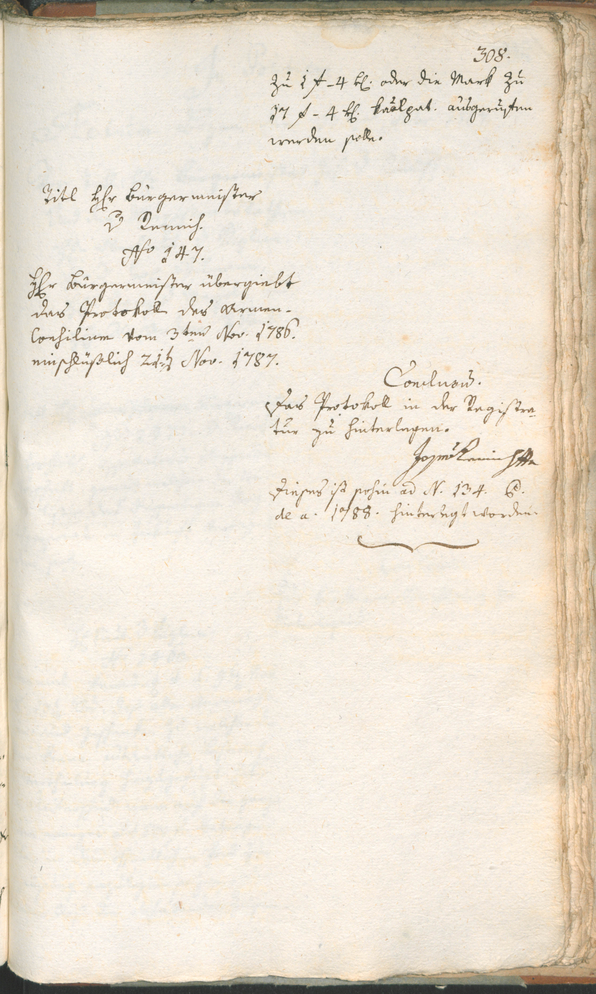 308.
zu 1 f – 4 kr. oder die Mark zu
17 f – 4 kr. ausgeruffen
werden solle.
Titl Hr Bürgermeister
v Remich.
No 147.
Hr Bürgermeister übergiebt
das Protokoll des Armen-
Consilium vom 3ten Nov. 1786.
einschlüßlich 21t Nov. 1787.
Conclusum.
Das Protokoll in der Registra
tur zu hinterlegen.
Dieses ist sohin ad N. 134. 6.
de a. 1788. hinterlegt worden.